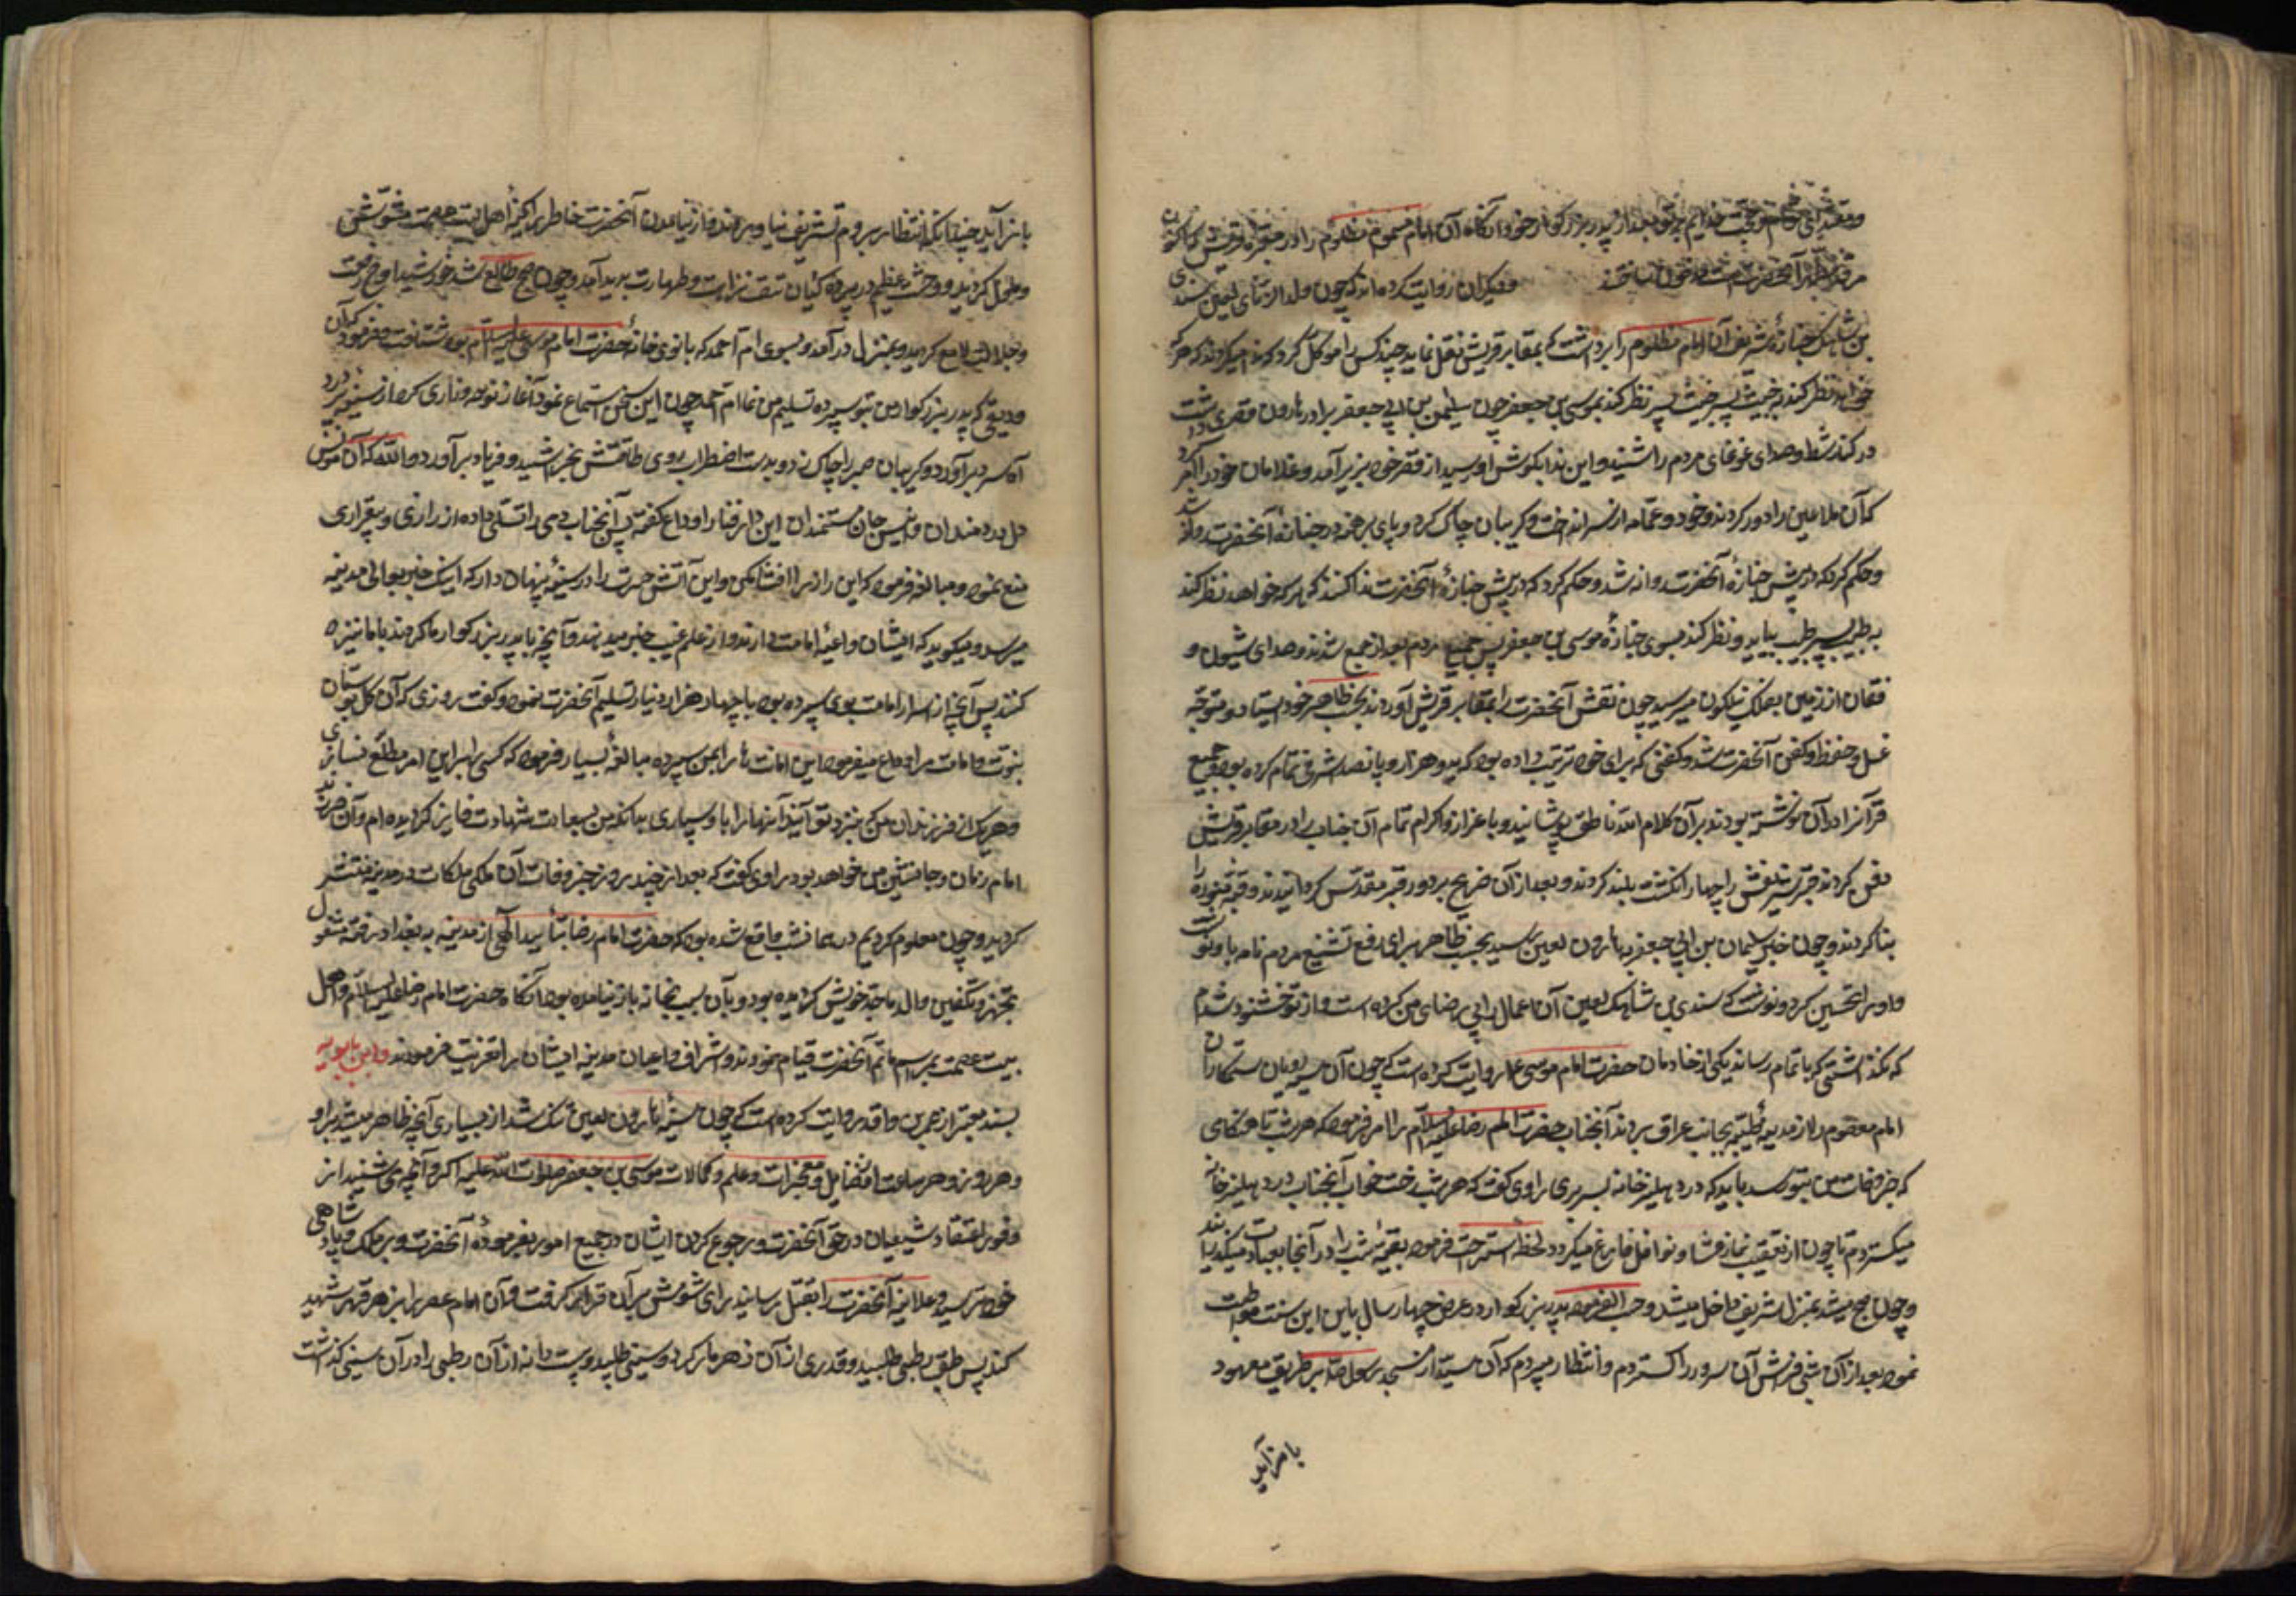 و مقتدای و حجت خدایم بر تو بعد از پدر بزرگوار خود آنگاه آن امام مسموم مظلوم را در مقبره قریش که اکنون
مرقد مطهر آنحضرت است مدفون ساختند و دیگران روایت کرده‌اند که چون ولد الزنای لعین سندی
بن شاهک جنازه شریف آن امام مظلوم را برداشت که بمقابر قریش نقل نماید چند کس را موکل کرد که ندا میکردند که هر که
خواهد نظر کند بخبیث پسر خبیث پس نظر کند بموسی بن جعفر چون سلیمن بن ابی جعفر برادر هارون قصری داشت
در کنار شط صدای غوغای مردم را شنید و این ندا بکوش او رسید از قصر خود بزیر آمد و غلامان خود را امر کرد
که آن ملاعین را دور کردند و خود عمامه از سر انداخت و کریبان چاک کرد و پای برهنه در جنازهٔ آنحضرت روانه شد
و حکم کرد که در پیش جنازهٔ آنحضرت روانه شد و حکم کرد که در پیش جنازهٔ آنحضرت ندا کنند که هر که خواهد نظر کند
به طیب پسر طیب بیاید و نظر کند بسوی جنازهٔ موسی بن جعفر پس جمیع مردم بغداد جمع شدند و صدای شیون و
فغان از زمین بفلک نیلکون میرسید چون نعش آنحضرت را بمقابر قریش آوردند بحسب ظاهر خود ایستاد و متوجه
غسل و حنوط و کفن آنحضرت شد و کفنی که برای خود ترتیب داده بود که بدو هزار و پانصد اشرفی تمام کرده بود و جمیع
قرآنرا در آن نوشته بودند بر آن کلام الله ناطق پوشانید و با اعزاز و اکرام تمام آن جناب را در مقابر قریش
دفن کردند قبر شریفش را چهار انکشت بلند کردند و بعد از آن ضریح بر دور قبر مقدس کردانیدند و قبهٔ منوره را
بنا کردند و چون خبر سلیمان بن ابی جعفر بهارون لعین رسید بحسب ظاهر برای رفع تشنیع مردم نامه باو نوشت
و او را تحسین کرد و نوشت که سندی بن شاهک لعین آن اعمال را بی رضای من کرده است و از تو خوشنود شدم
که نکذاشتی که باتمام رساند یکی از خادمان حضرت امام موسی ع روایت کرده است که چون آن سیه رویان ستمکاران
امام معصوم را از مدینهٔ طیبه بجانب عراق بردند آنجناب حضرت امام رضا علیه السلام را امر فرمود که هر شب تا هنکامی
که خبر وفات من بتو رسد باید که در دهلیز خانه بسر بری راوی کفت که هر شب رخت خواب آنجناب در دهلیز خانه
میکستردم تا چون از تعقیب نماز عشا و نوافل فارغ میکردد لحظه استراحت فرموده بقیهٔ شب را در آنجا بعبادت میکذرانید
و چون صبح میشد بمنزل شریف داخل میشد و حسب الفرموده پدر بزرکوار در عرض چهار سال باین این سنت مواظبت
نموده بعد از آن شبی فرش آن سرور را کستردم و انتظار میبردم که آن سید از مسجد رسول خدا بر طریق معهود
باز آید
باز آید چندانکه انتظار بردم تشریف نیاورند و از نیامدن آنحضرت خاطر پاکیزهٔ اهل بیت عصمت مشوش
و ملول کردید و وحشت عظیم در پرده کیان تتق نزاهت و طهارت پدید آمد و چون صبح طالع شد خورشید اوج رفعت
و جلالت لامع کردید و بمنزل در آمد و بسوی ام احمد که بانوی خانهٔ حضرت امام موسی علیه السلام بود شتافت و فرمود که آن
ودیعتی که پدر بزرکوار من بتو سپرده تسلیم من نما ام احمد چون این سخن استماع نمود آغاز نوحه و زاری کرد و از سینهٔ پر درد
آه سرد بر آورد و کریبان صبر را چاک زد و بدست اضطراب روی طاقتش بخراشید و فریاد بر آورد و الله که آن مونس
دل دردمندان و انیس جان مستمندان این دار فنا را وداع کفته پس آنجناب وی را تسلی داده از زاری و بیقراری
منع نمود و مبالغه فرمود که این راز را افشا مکن و این آتش حسرت را در سینهٔ پنهان دار که اینک خبر بوالی مدینه
میرسد و میکوید که ایشان داعیهٔ امامت دارند و از علم غیب خبر میدهند و آنچه با پدر بزرکوار ما کردند با ما نیز
کنند پس آنچه از اسرار امامت بوی سپرده بود با چهار هزار دینار تسلیم آنحضرت نمود و کفت روزی که آن کل بوستان
نبوت و امامت مرا وداع میفرمود این امانت را بمن سپرده مبالغهٔ بسیار فرمود که کسی را بر این امر مطلع نسازی
و هر یک از فرزندان من که بنزد تو آیند آنها را باو سپاری بدانکه من بسعادت شهادت فایز کردیده ام و آن فرزند
امام زمان و جانشین من خواهد بود راوی کفت که بعد از چند روز خبر وفات آن ملکی ملکات در مدینه منتشر
کردید و چون معلوم کردیم در همان شب واقع شده بود که حضرت امام رضا بتأیید الهی از مدینه به بغداد رفته مشغول
تجهیز و تکفین والد ماجد خویش کردیده بود و بآن سبب بخانه باز نیامده بود آنکاه حضرت امام رضا علیه السلام و اهل
بیت عصمت بمراسم ماتم آنحضرت قیام نمودند و اشراف و اعیان مدینه ایشان را تعزیت فرمودند و ابن بابویه
بسند معتبر از عمر بن واقد روایت کرده است که چون سینهٔ هارون لعین تنک شد از بسیاری آنچه ظاهر میشد بر او
در هر روز و هر ساعت از فضایل و معجزات و علم و کمالات موسی بن جعفر صلوات الله علیه اکر و آنچه می شنید از
وفور اعتقاد شیعیان در حق آنحضرت و رجوع کردن ایشان در جمیع امور بفرمودهٔ آنحضرت و بر ملک و پادشاهی
خود ترسید و علانیه آنحضرت را بقتل رسانید برای شومش بر آن قرار کرفت و آن امام عصر را بزهر قهر شهید
کند پس طبق رطبی طلبید و قدری از آن زهر مار کرد و سینی طلبید و بیست دانه از آن رطبی را در آن سینی کذاشت